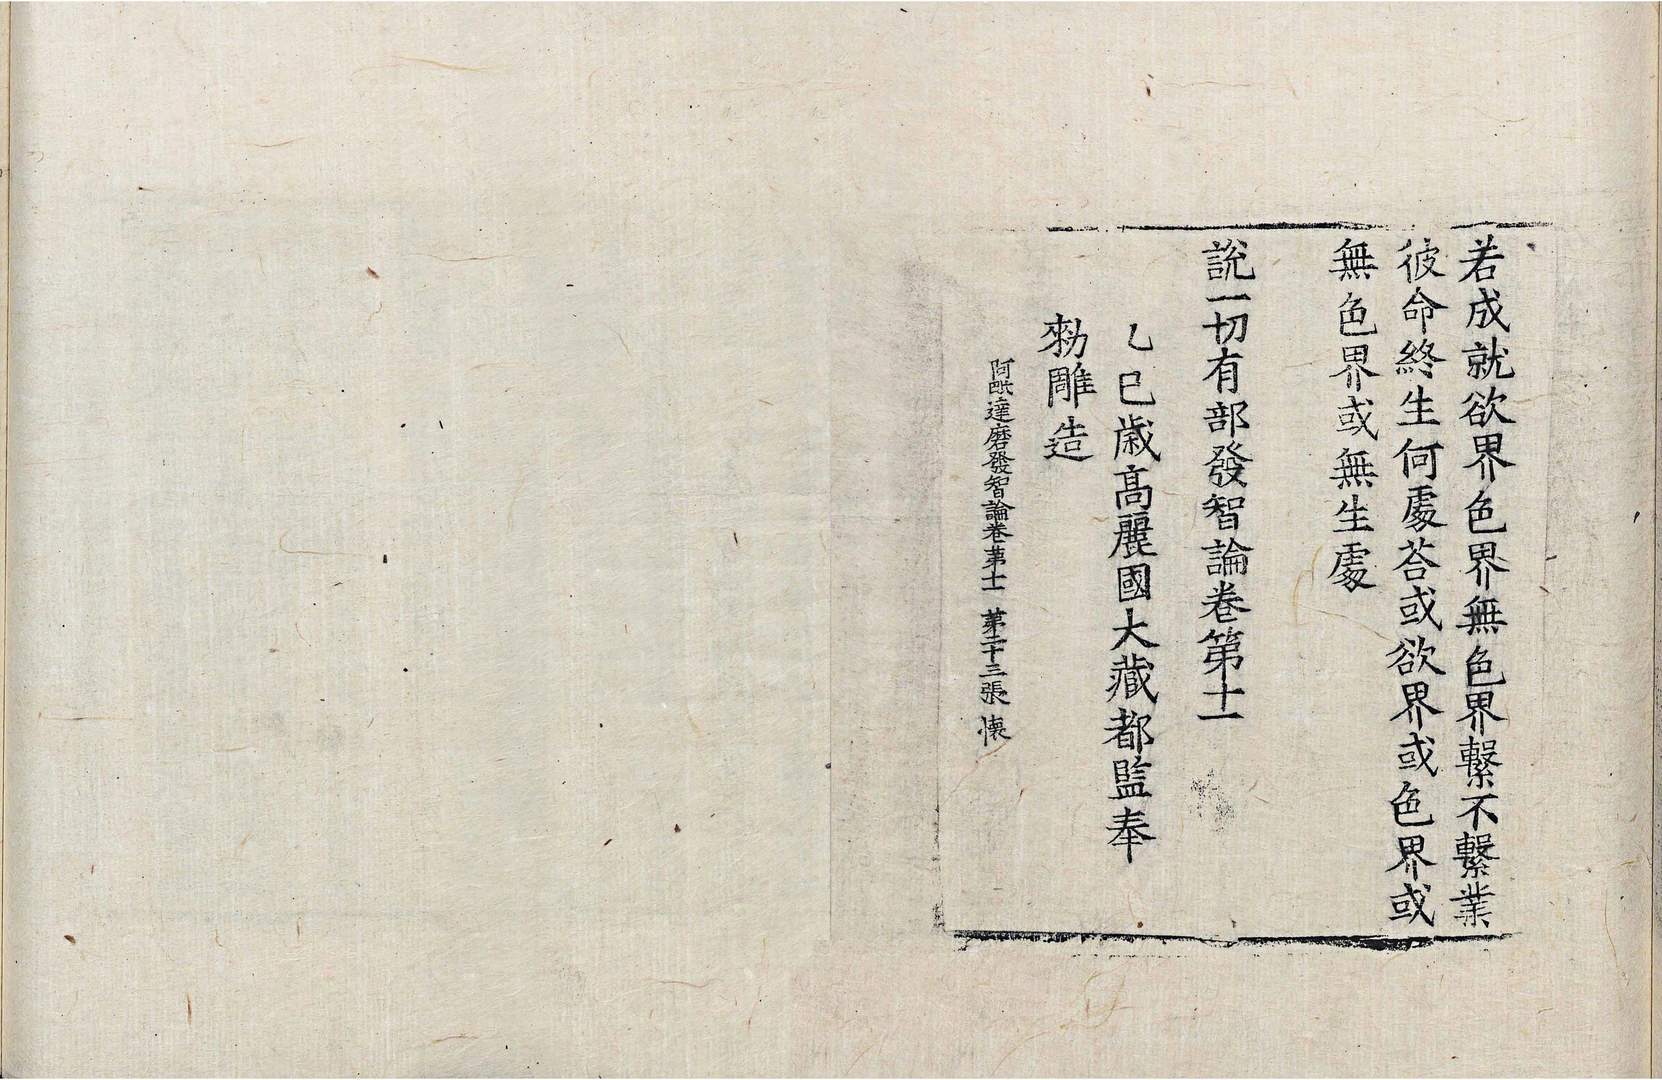 若成就欲界色界無色界繫不繫業
彼命終生何處荅或欲界或色界或
無色界或無生處
說一切有部發智論卷第十一
乙巳歲高麗國大藏都監奉
勑雕造
阿毗達磨發智論卷第十一 第二十三張 懷